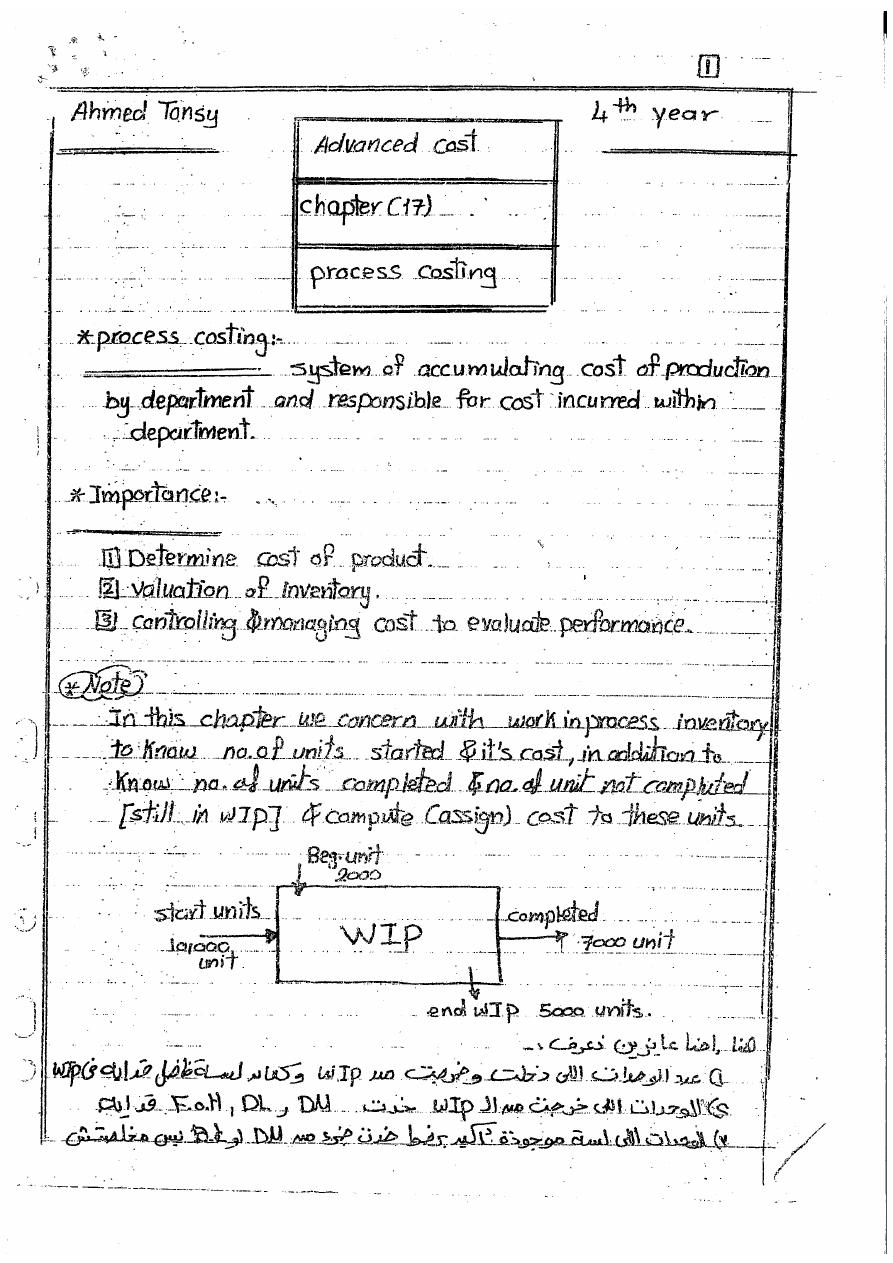 1
Ahmed Tansy
4th year
Advanced cost
chapter (17)
process costing
* process costing:-
system of accumulating cost of production
by department and responsible for cost incurred within
department.
* Importance:-
1 Determine cost of product.
2 Valuation of inventory.
3 controlling & managing cost to evaluate performance.
* Note
In this chapter we concern with work in process inventory
to know no. of units started & it's cost, in addition to
know no. of units completed & no. of unit not completed
[still in WIP] & compute (assign) cost to these units.
Beg. unit
2000
start units
10,000
unit
WIP
completed
7000 unit
end WIP 5000 units.
هنا احنا عايزين نعرف :-
1) عدد الوحدات اللى دخلت وخرجت من WIP وكمان لسة فاضل قد ايه فى WIP
2) الوحدات اللى خرجت من الـ WIP خدت DM و DL , F.O.H قد ايه
3) الوحدات اللى لسة موجودة أكيد برضو خدت جزء من DM او DL بس مخلصتش